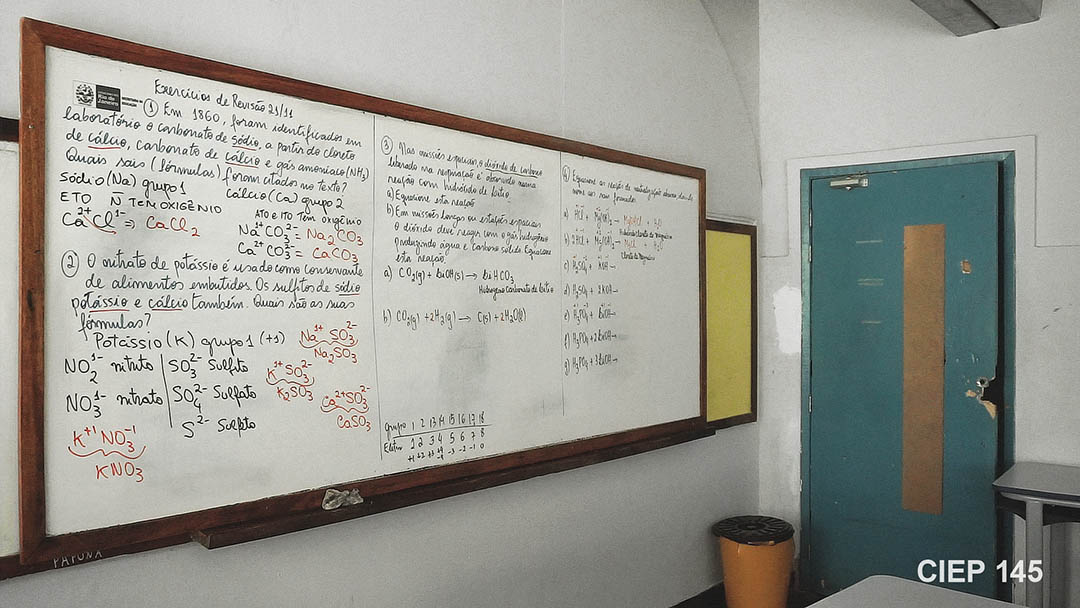 Exercícios de Revisão 21/11
① Em 1860, foram identificados em
laboratório o carbonato de sódio, a partir do cloreto
de cálcio, carbonato de cálcio e gás amoníaco (NH₃)
Quais sais (fórmulas) foram citados no texto?
Sódio (Na) grupo 1
Cálcio (Ca) grupo 2
ETO Ñ TEM OXIGÊNIO
ATO e ITO TÊM OXIGÊNIO
Ca²⁺Cl¹⁻ ⇒ CaCl₂
Na¹⁺CO₃²⁻ = Na₂CO₃
Ca²⁺CO₃²⁻ = CaCO₃
② O nitrato de potássio é usado como conservante
de alimentos embutidos. Os sulfitos de sódio
potássio e cálcio também. Quais são as suas
fórmulas?
Potássio (K) grupo 1 (+1)
Na¹⁺ SO₃²⁻
Na₂SO₃
NO₂¹⁻ nitrito
SO₃²⁻ Sulfito
K¹⁺SO₃²⁻
K₂SO₃
NO₃¹⁻ nitrato
SO₄²⁻ Sulfato
Ca²⁺SO₃²⁻
CaSO₃
S²⁻ Sulfeto
K⁺¹NO₃⁻¹
KNO₃
③ Nas missões espaciais, o dióxido de carbono
liberado na respiração é absorvido numa
reação com hidróxido de lítio.
a) Equacione esta reação
b) Em missões longas ou estações espaciais
o dióxido deve reagir com o gás hidrogênio
produzindo água e carbono sólido. Equacione
esta reação.
a) CO₂(g) + LiOH(s) → LiHCO₃
Hidrogeno Carbonato de lítio
b) CO₂(g) + 2H₂(g) → C(s) + 2H₂O(l)
grupo 1 2 13 14 15 16 17 18
1 2 3 4 5 6 7 8
+1 +2 +3 +4 -3 -2 -1 0
-4
④ Equacione as reações de neutralização
nome aos sais
a) HCl +
b) 2HCl +
Cloreto de Magnésio
c) H₂SO₄ + KOH →
d) H₂SO₄ + 2KOH →
e) H₃PO₄ + LiOH →
f) H₃PO₄ + 2LiOH →
g) H₃PO₄ + 3LiOH →
PAPUNA
CIEP 145